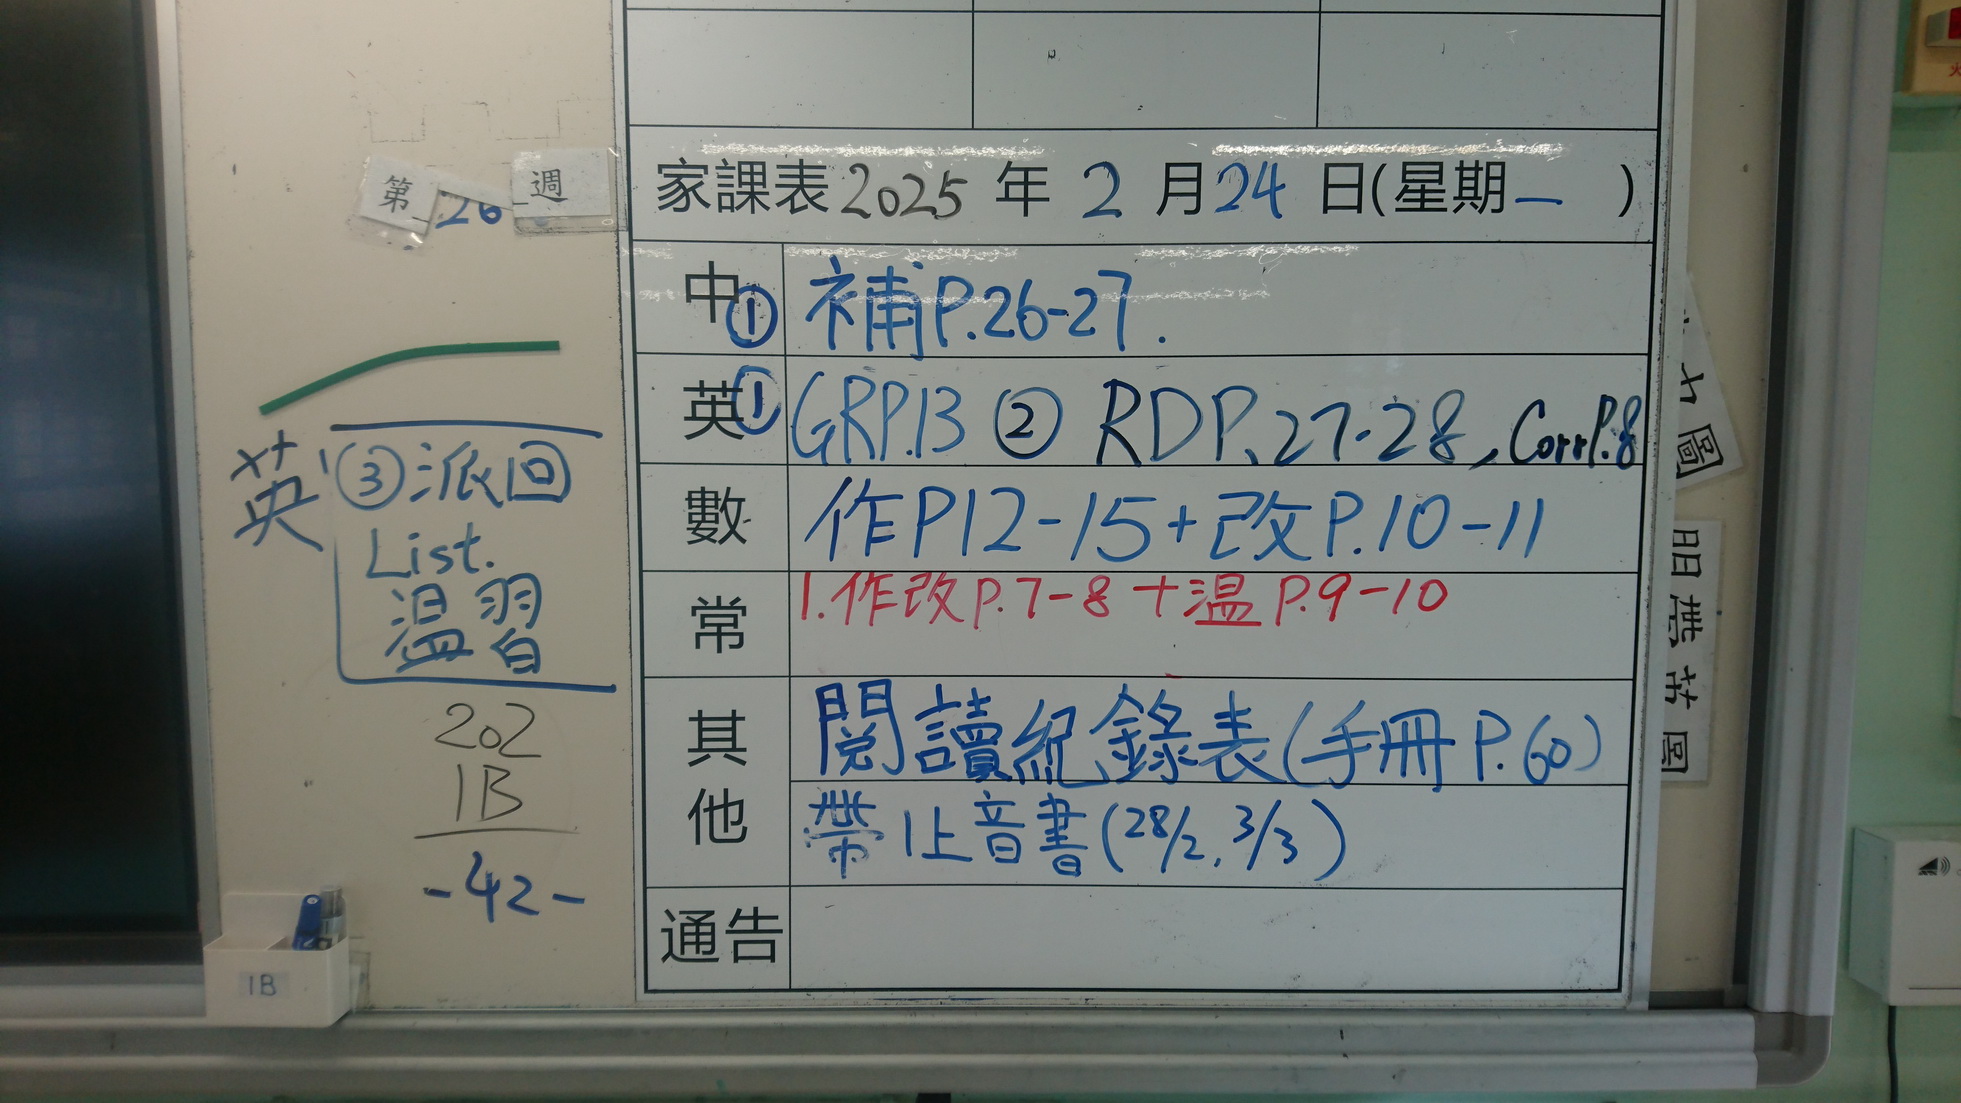 第 26 週
家課表 2025 年 2 月 24 日(星期一 )
中① 補P.26-27.
英① GRP.13 ② RDP.27-28, CorrP.8
英 ③派回
List.
溫習
數 作P12-15+改P.10-11
常 1.作改P.7-8+溫P.9-10
其他 閱讀紀錄表(手冊P.60)
帶止音書(28/2, 3/3)
通告
202
1B
-42-
1B
圖